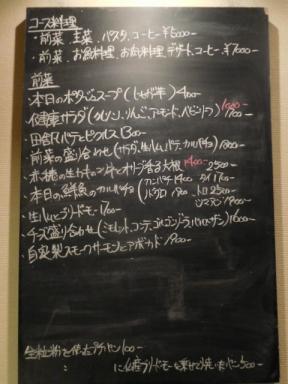 コース料理
・前菜、主菜、パスタ、コーヒー ¥5000-
・前菜、お魚料理、お肉料理、デザート、コーヒー、¥7000-
前菜
・本日のポタージュスープ(じゃがいも) 400-
・健康サラダ(クルソン、りんご、アーモンド、ベビーリーフ) 1700-
・田舎風パテとピクルス 1300-
・前菜の盛り合わせ(サラダ、生ハム、パテ、カルパッチョ) 1800-
・オリーブ香る大根 1400-
2500-
・本日の鮮魚のカルパッチョ(カンパチ 1400 タイ 1700-
トロ 2500-
シマアジ 1900-
・生ハムとブリドモー 1700-
・チーズ盛り合わせ(ミモレット、コンテ、ゴルゴンゾーラ、 1600-
・自家製スモークサーモンとアボカド 1900-
全粒粉を使ったプチパン 100-
〃 にブリドモーを乗せて焼いたパン 300-